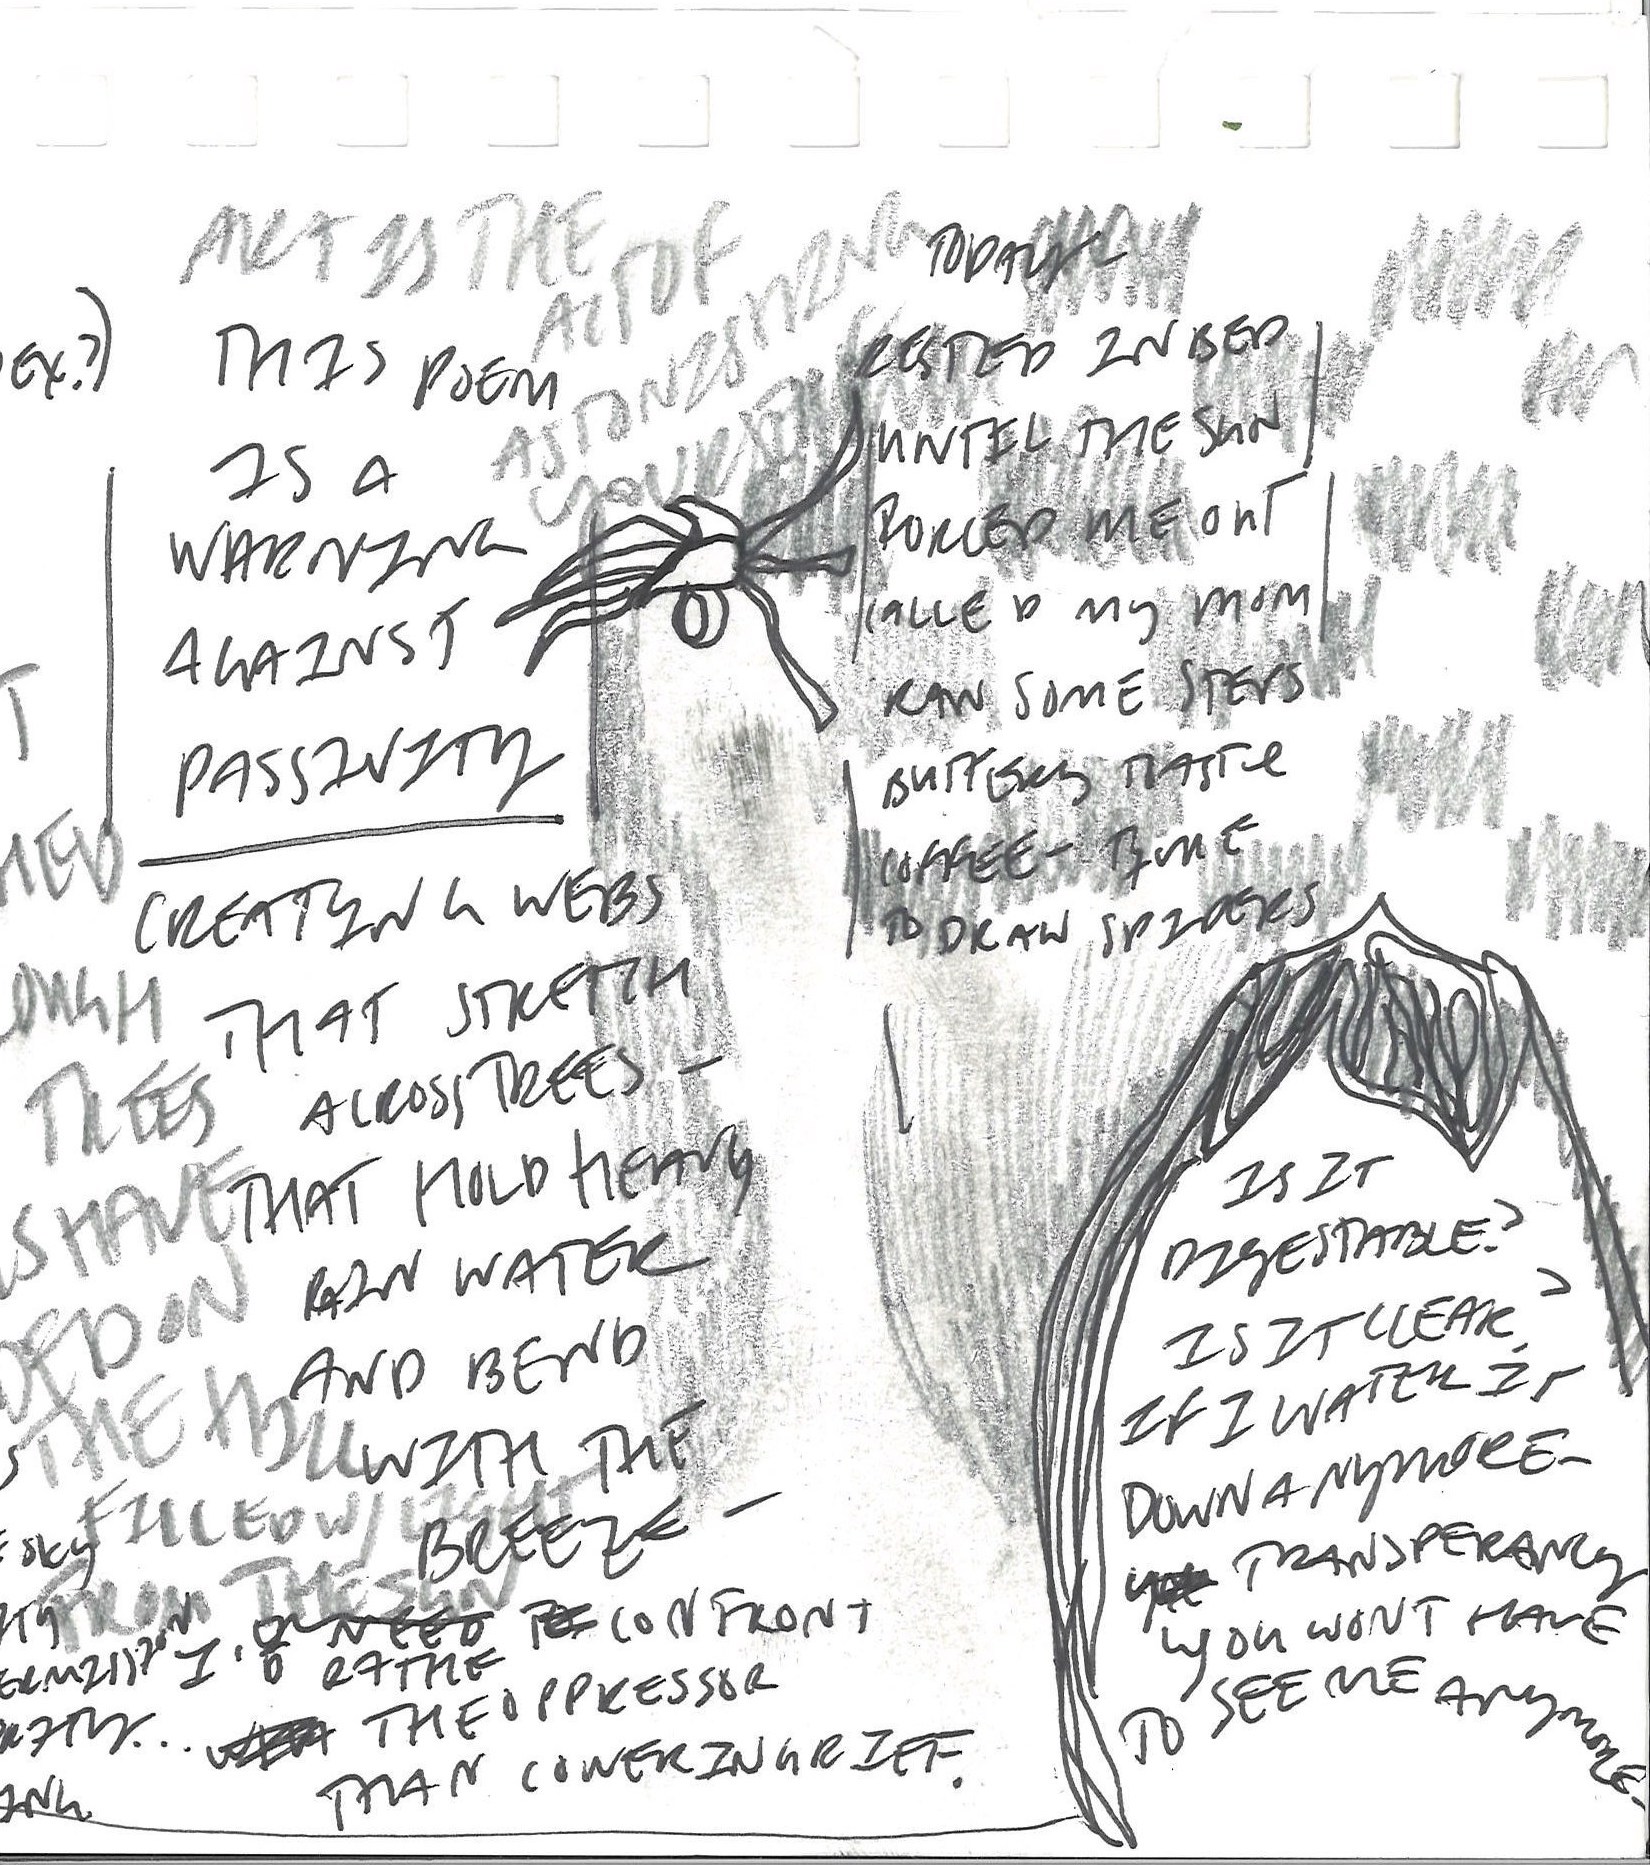 ART IS THE
ACT OF
ASTONISHING
YOURSELF
EX.?)
THIS POEM
IS A
WARNING
AGAINST
PASSIVITY
CREATING WEBS
THAT STRETCH
ACROSS TREES -
THAT HOLD HEAVY
RAIN WATER
AND BEND
WITH THE
BREEZE -
I'D RATHE CONFRONT
THE OPPRESSOR
THAN COWER IN GRIEF.
TREES
HAVE
ON
THE HILL
FILLED W/ LIGHT
FROM THE SUN
SKY
TODAY I
RESTED IN BED
UNTIL THE SUN
FORCED ME OUT
CALLED MY MOM
RAN SOME STEPS
BUTTERY TASTE
COFFEE - TIME
TO DRAW SPIDERS
IS IT
DIGESTABLE?
IS IT CLEAR?
IF I WATER IT
DOWN ANYMORE -
TRANSPERANCY
YOU WONT HAVE
TO SEE ME ANYMORE.